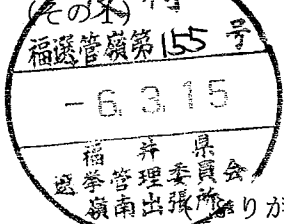 (その1)
福選管嶺第155号
-6.3.15
福井県
選挙管理委員会
嶺南出張所
りが